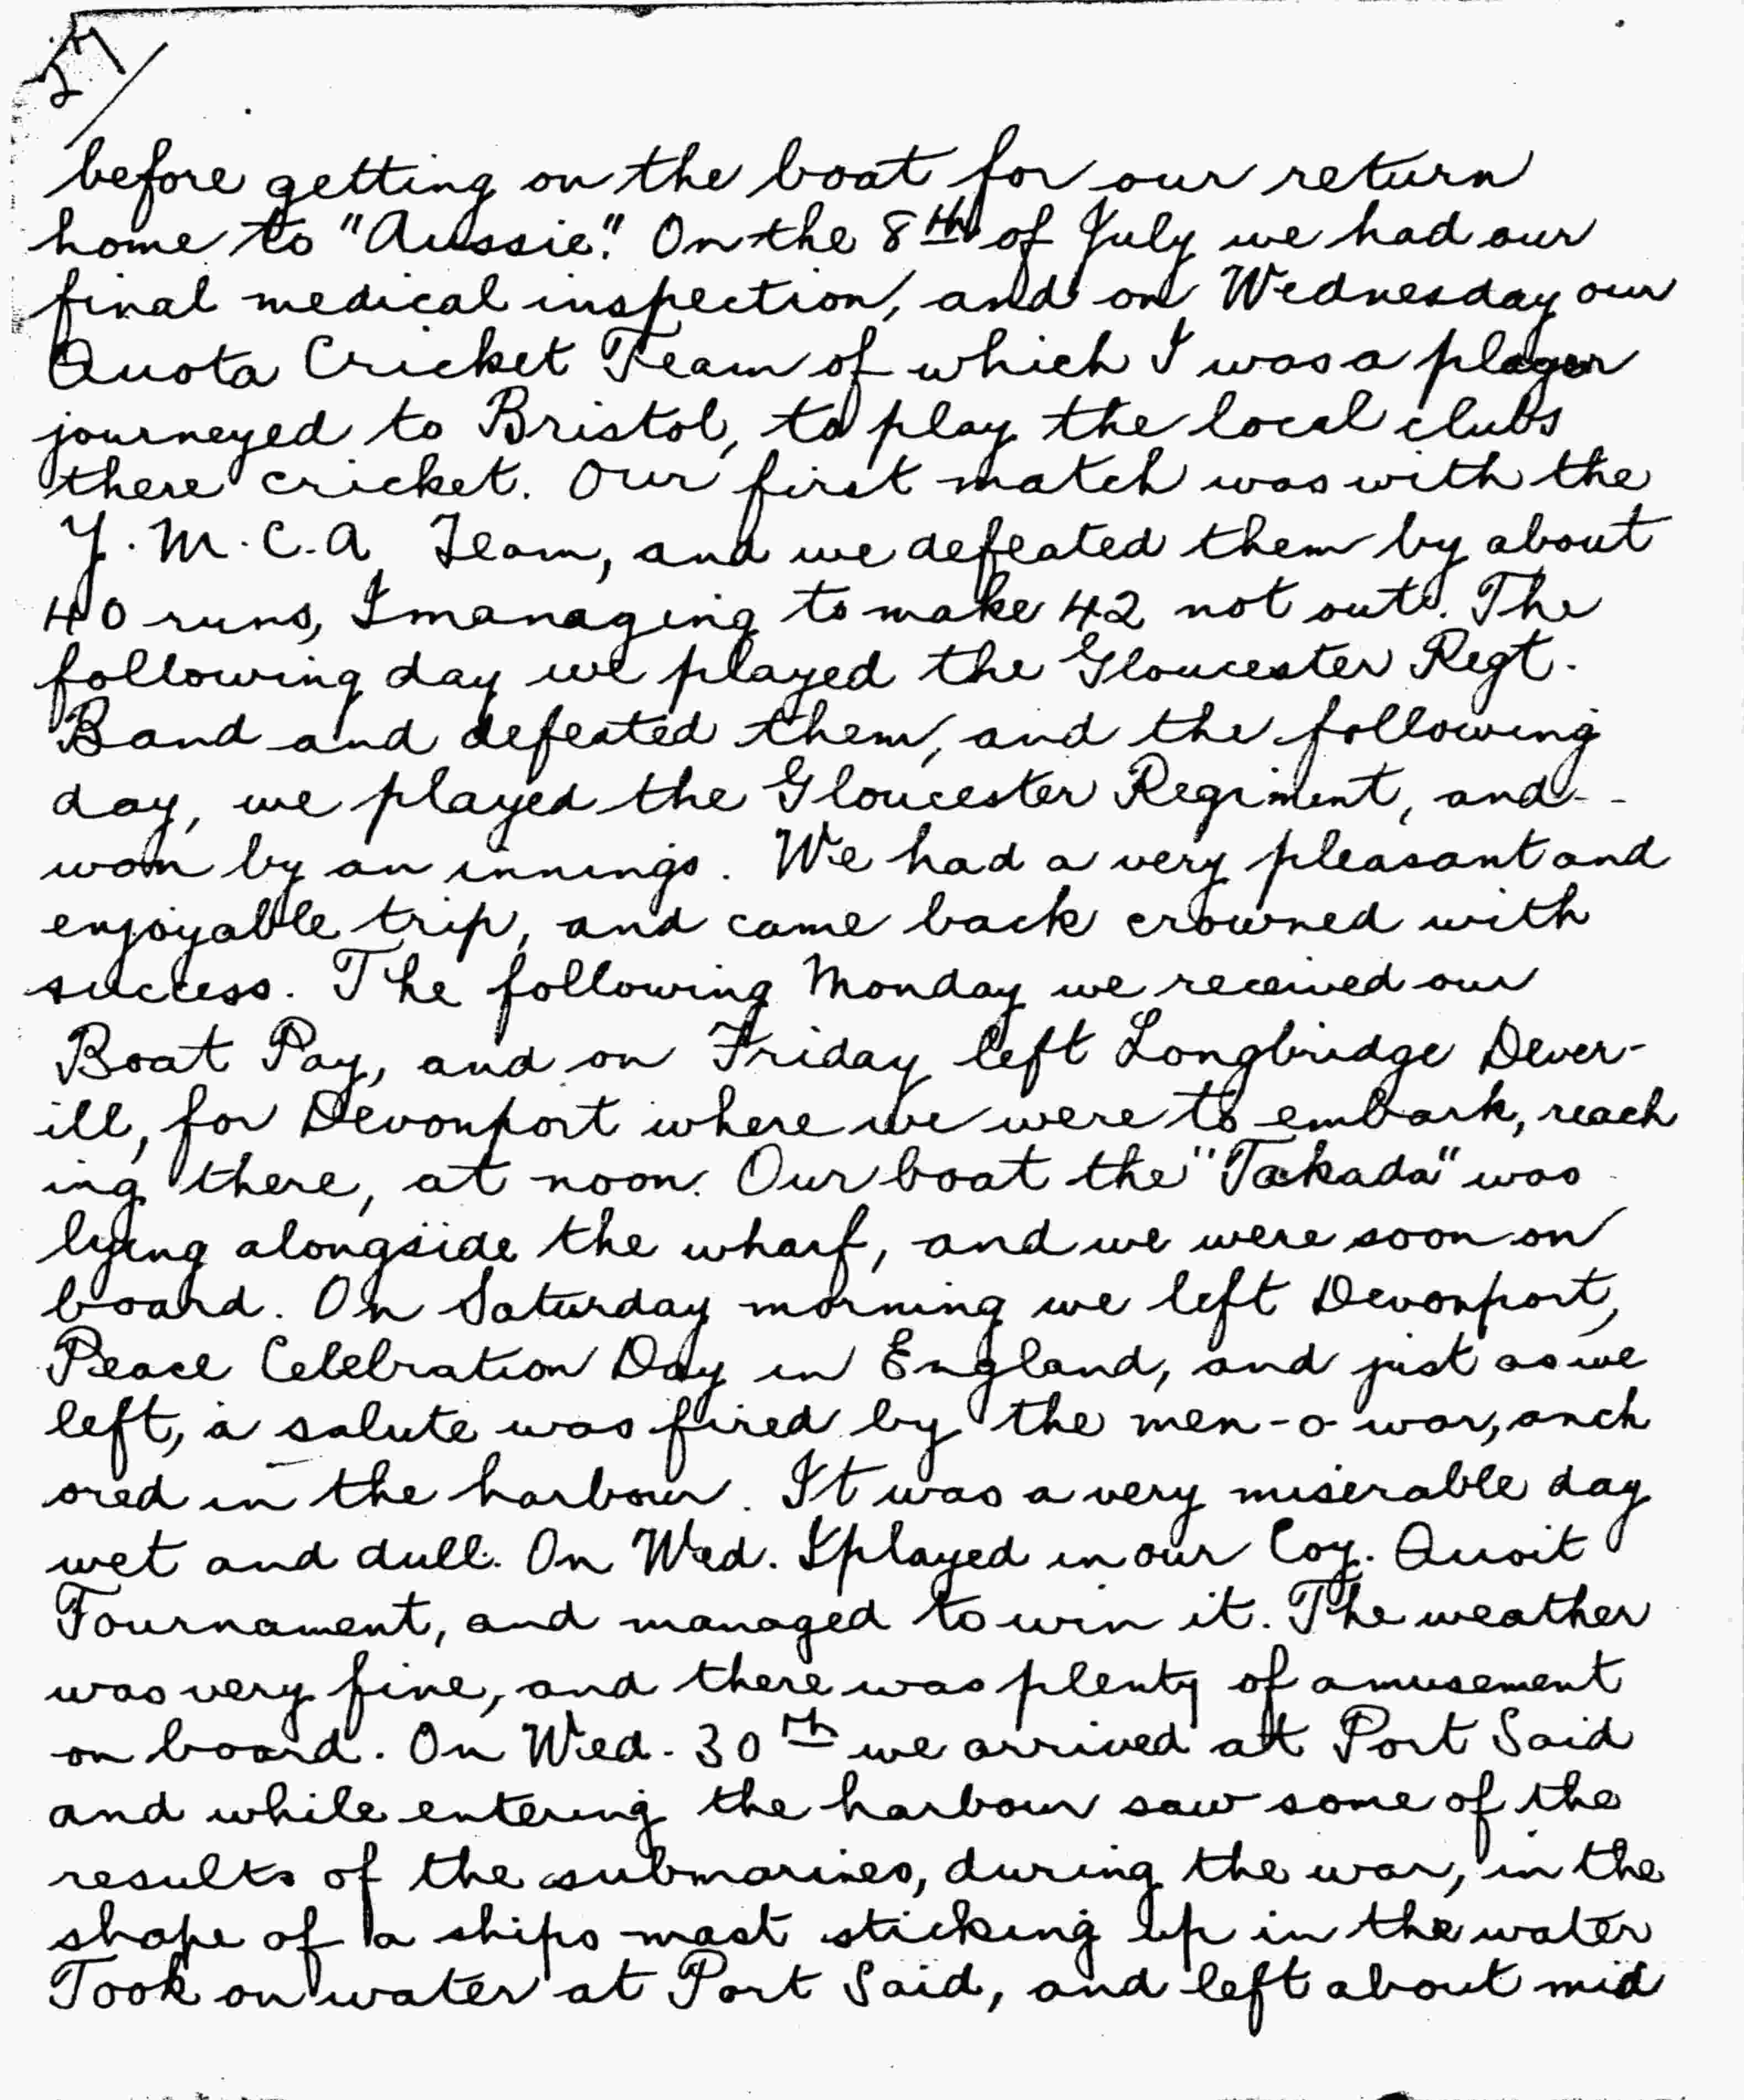 before getting on the boat for our return
home to "Aussie". On the 8th of July we had our
final medical inspection, and on Wednesday our
Quota Cricket Team of which I was a player
journeyed to Bristol, to play the local clubs
there cricket. Our first match was with the
Y.M.C.A Team, and we defeated them by about
40 runs, I managing to make 42 not out. The
following day we played the Gloucester Regt.
Band and defeated them, and the following
day, we played the Gloucester Regiment, and - -
won by an innings. We had a very pleasant and
enjoyable trip, and came back crowned with
success. The following Monday we received our
Boat Pay, and on Friday left Longbridge Dever-
ill, for Devonport where we were to embark, reach
ing there, at noon. Our boat the "Takada" was
lying alongside the wharf, and we were soon on
board. On Saturday morning we left Devonport,
Peace Celebration Day in England, and just as we
left, a salute was fired by the men-o-war, anch
ored in the harbour. It was a very miserable day
wet and dull. On Wed. I played in our Coy. Quoit
Tournament, and managed to win it. The weather
was very fine, and there was plenty of amusement
on board. On Wed. 30th we arrived at Port Said
and while entering the harbour saw some of the
results of the submarines, during the war, in the
shape of a ships mast sticking up in the water
Took on water at Port Said, and left about mid